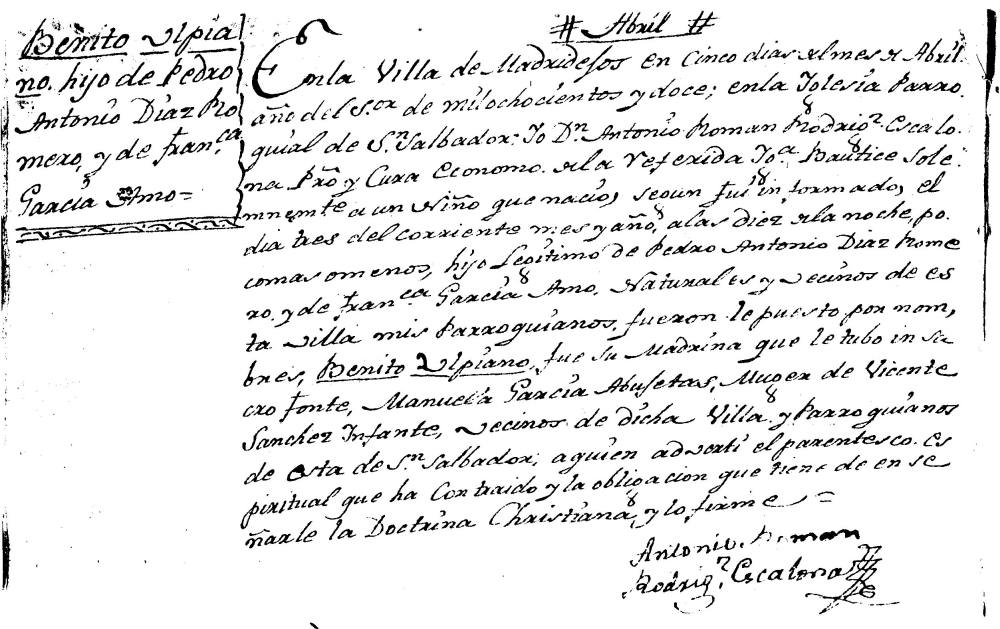 Benito Ulpia
no. hijo de Pedro
Antonio Diaz Ro
mero, y de Fran.ca
Garcia Amo=
# Abril #
En la Villa de Madridejos en Cinco dias del mes de Abril.
año del S.or de mil ochocientos y doce; en la Iglesia Parro.
quial de S.n Salbador: Yo D.n Antonio Roman Rodrig.z Escalo.
na Pr̃o y Cura Economo de la referida Ig.a Bautice Sole.
mnem.te a un Niño que nacio, segun fui informado, el
dia tres del corriente mes y año, a las diez de la noche, po.
co mas o menos, hijo Legitimo de Pedro Antonio Diaz Rome
ro, y de Fran.ca Garcia Amo, Naturales y Vecinos de es
ta Villa mis Parroquianos, fueron le puesto por nom,
bres, Benito Ulpiano, fue su Madrina que le tubo in sa
cro fonte, Manuela Garcia Abusetas, Muger de Vicente
Sanchez Infante, Vecinos de dicha Villa y Parroquianos
de esta de S.n Salbador; a quien adverti el parentesco es
piritual que ha Contraido y la obligacion que tiene de en se
ñarle la Doctrina Christiana, y lo firme =
Antonio Roman
Rodrig.z Escalona